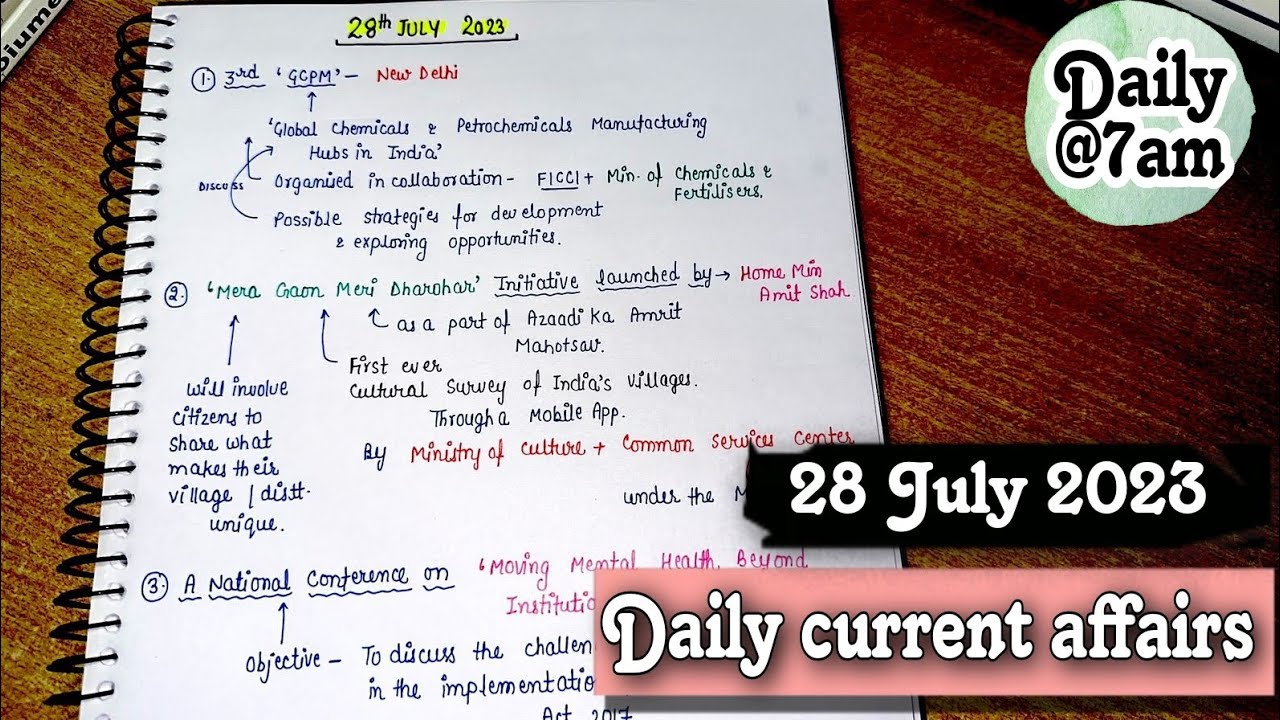 28th JULY 2023
1. 3rd 'GCPM' - New Delhi
'Global Chemicals & Petrochemicals Manufacturing
Hubs in India'
DISCUSS
Organised in collaboration - FICCI + Min. of Chemicals &
Fertilisers.
Possible strategies for development
& exploring opportunities.
2. 'Mera Gaon Meri Dharohar' Initiative launched by → Home Min
Amit Shah
as a part of Azaadi Ka Amrit
Mahotsav.
First ever
Cultural Survey of India's Villages.
Through a Mobile App.
By Ministry of Culture + Common Services Center
under the
will involve
citizens to
share what
makes their
village / distt.
unique.
3. A National Conference on 'Moving Mental Health Beyond
Objective - To discuss the
in the
Act 2017
Daily
@7am
28 July 2023
Daily current affairs